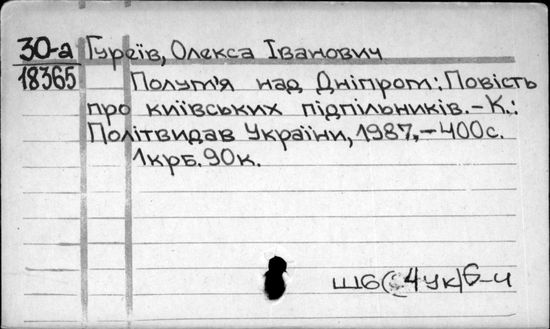 30-а Гуреїв, Олекса Іванович
18365 Полум'я над Дніпром: Повість
про київських підпільників.-К.:
Політвидав України, 1987,-400с.
1крб.90к.
Ш6(4Ук)6-4